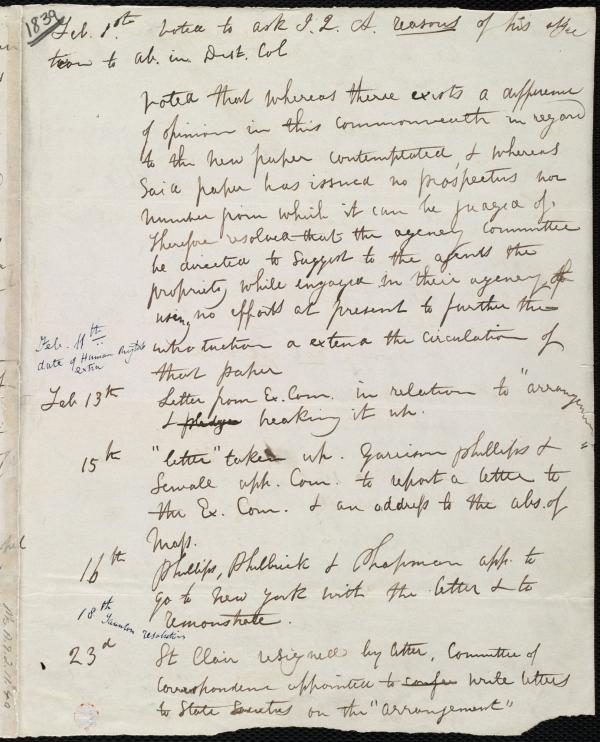 1839
Feb. 1.st Voted to ask J. Q. A. reasons of his objec
tion to ab. in. Dist. Col
Voted that whereas there exists a difference
of opinion in this commonwealth in regard
to the new paper contemplated, & whereas
said paper has issued no prospectus nor
number from which it can be judged of.
Therefore resolved that the agency Committee
be directed to suggest to the agents the
propriety while engaged in their agency of
using no efforts at present to further the
introduction & extend the circulation of
that paper
Feb. 11th
date of Human Rights
extra
Feb 13th Letter from Ex. Com. in relation to "arrangement"
& pledge breaking it up.
15th "letter" taken up. Garrison Phillips &
Sewall app. Com. to report a letter to
the Ex. Com. & an address to the abs. of
Mass.
16th Phillips, Philbrick & Chapman app. to
go to New York with the letter & to
remonstrate.
18th Taunton resolution
23d St Clair resigned by letter, Committee of
Correspondence appointed to write letters
to State Societies on the "arrangement"